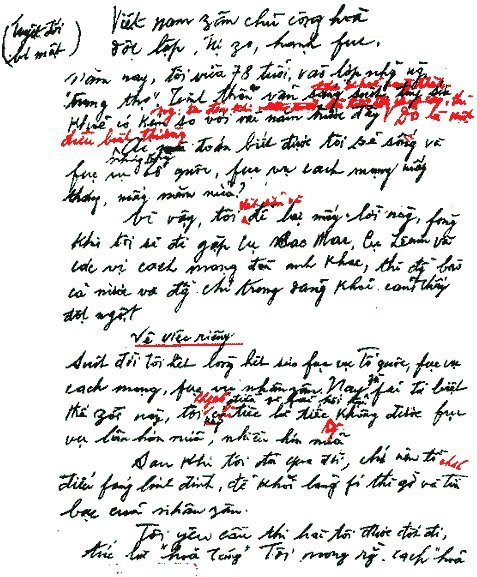 (Tuyệt đối
bí mật)
Việt nam zân chủ cộng hoà
độc lập, tự zo, hạnh fuc.
Năm nay, tôi vừa 78 tuổi, vào lớp những ng
"trung thọ". Tinh thần vẫn sáng suốt, tuy sức
khoẻ có kém so với vài năm trước đây. Đó là một
điều bình thường.
Ai mà đoán biết được tôi sẽ sống và
fục vụ tổ quốc, fục vụ cách mạng mấy
tháng, mấy năm nữa?
Vì vậy, tôi để lại mấy lời này, fòng
khi tôi sẽ đi gặp cụ Các Mac, Cụ Lênin và
các vị cách mạng đàn anh khác, thì đg bào
cả nước và đg chí trong đảng khỏi cảm thấy
đột ngột.
Về việc riêng
Suốt đời tôi hết lòng hết sức fục vụ Tổ quốc, fục vụ
cách mạng, fục vụ nhân zân. Nay fải từ biệt
thế zới này, tôi tiếc là tiếc không được fục
vụ lâu hơn nữa, nhiều hơn nữa
Sau khi tôi đã qua đời, chớ nên tổ chức
điếu fúng linh đình, để khỏi lãng fí thì giờ và tiền
bạc của nhân zân.
Tôi yêu cầu thi hài tôi được đốt đi,
tức là "hoả táng". Tôi mong rg cách "hoả